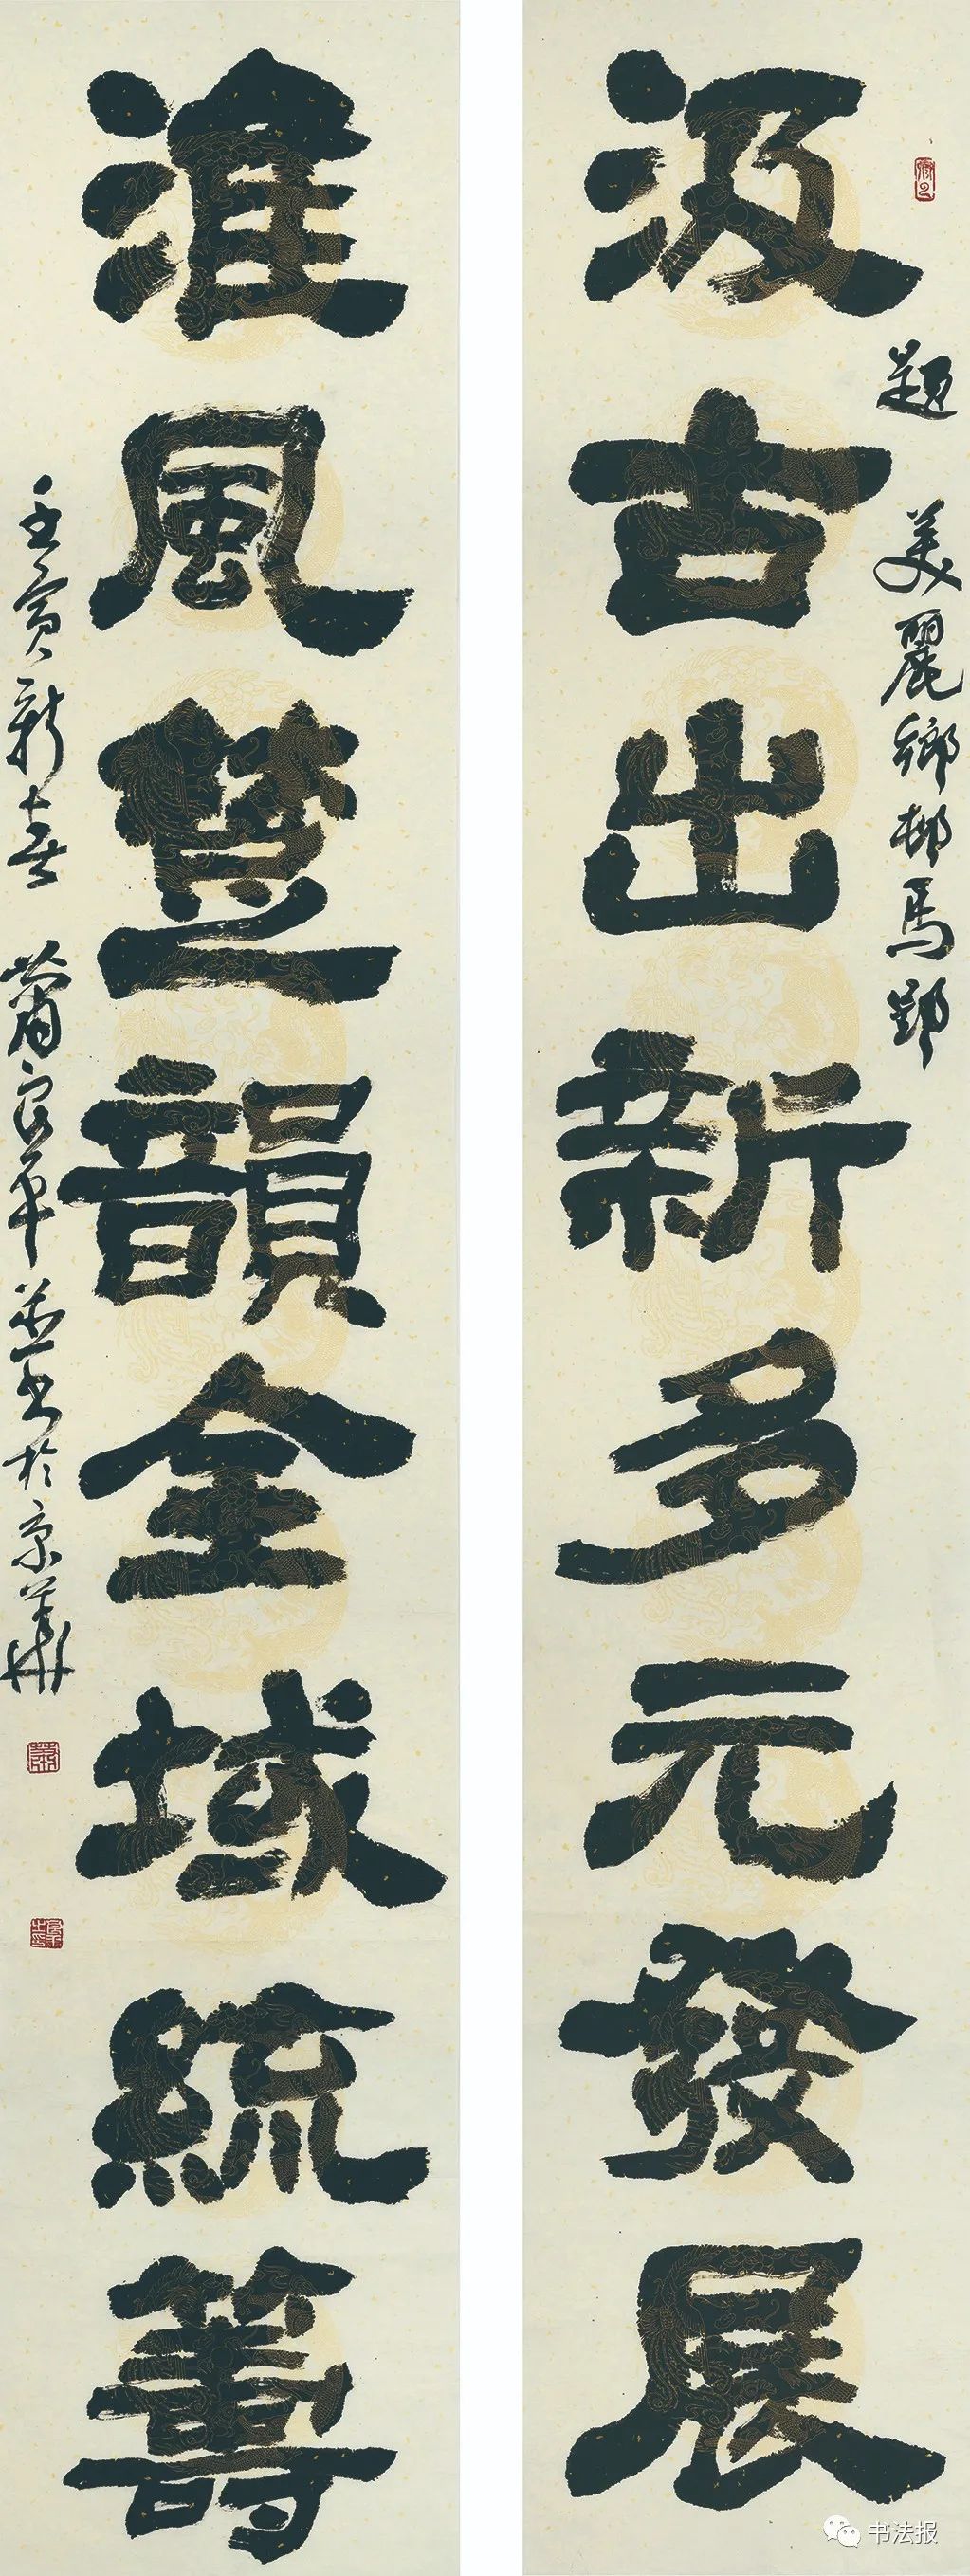 題 美麗鄉村馬鄧
汲古出新多元發展
淮風楚韻全域統籌
壬寅新春 蕭良平並書於京華
书法报